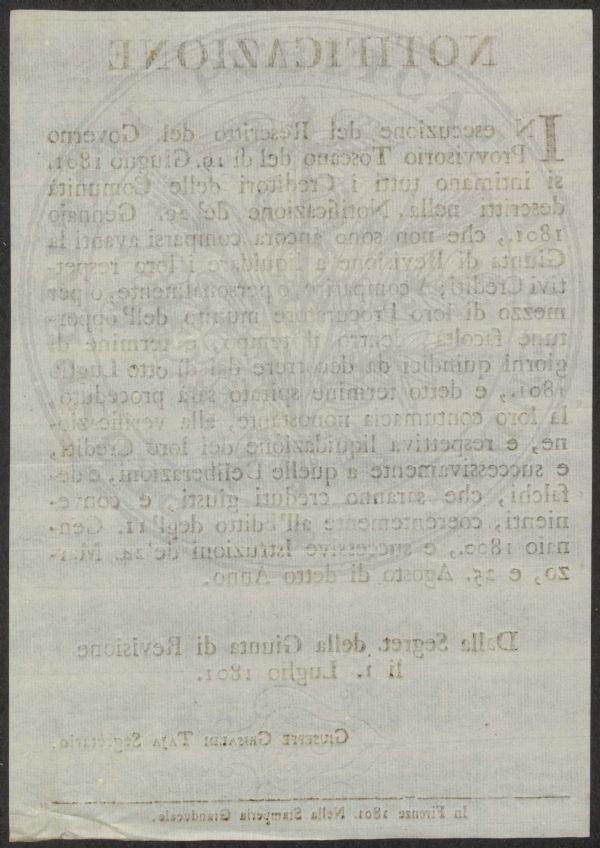 NOTIFICAZIONE
IN esecuzione del Rescritto del Governo
Provvisorio Toscano del dì 19. Giugno 1801.
si intimano tutti i Creditori delle Comunità
descritti nella Notificazione de'22. Gennajo
1801., che non sono ancora comparsi avanti la
Giunta di Revisione a liquidare i loro respet-
tivi Crediti, a comparire, o personalmente, o per
mezzo di loro Procuratore munito dell'oppor-
tune facoltà dentro il tempo, e termine di
giorni quindici da decorrere dal dì otto Luglio
1801., e detto termine spirato sarà proceduto,
la loro contumacia nonostante, alla verificazio-
ne, e respettiva liquidazione dei loro Crediti,
e successivamente a quelle Deliberazioni, e de-
falchi, che saranno creduti giusti, e conve-
nienti, coerentemente all'Editto degl'11. Gen-
naio 1800., e successive Istruzioni de'24. Mar-
zo, e 25. Agosto di detto Anno.
Dalla Segret. della Giunta di Revisione
li 1. Luglio 1801.
GIUSEPPE GRISALDI TAJA Segretario.
In Firenze 1801. Nella Stamperia Granducale.